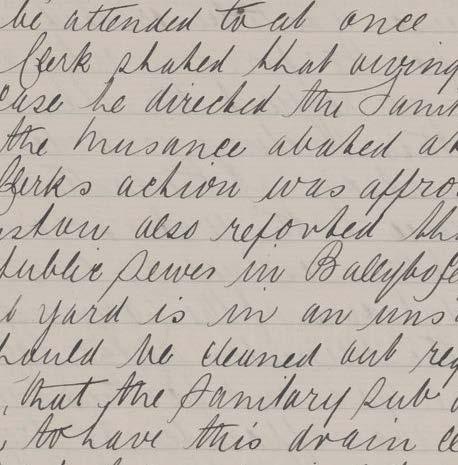 be attended to at once
Clerk stated that owing
case he directed the Sanit
the nusance abated at
Clerks action was appro
also reported tha
public sewer in Ballybofe
yard is in an uns
should be cleaned out reg
that the Sanitary Sub
to have this drain cl